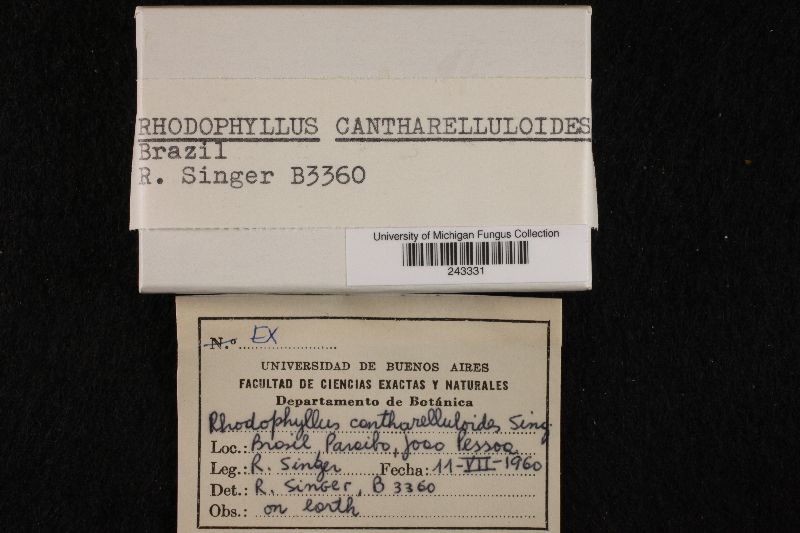 RHODOPHYLLUS CANTHARELLULOIDES
Brazil
R. Singer B3360
University of Michigan Fungus Collection
243331
N.º EX
UNIVERSIDAD DE BUENOS AIRES
FACULTAD DE CIENCIAS EXACTAS Y NATURALES
Departamento de Botánica
Rhodophyllus cantharelluloides Sing.
Loc.: Brasil Paraiba, Joao Pessoa
Leg.: R. Singer Fecha: 11-VII-1960
Det.: R. Singer, B 3360
Obs.: on earth